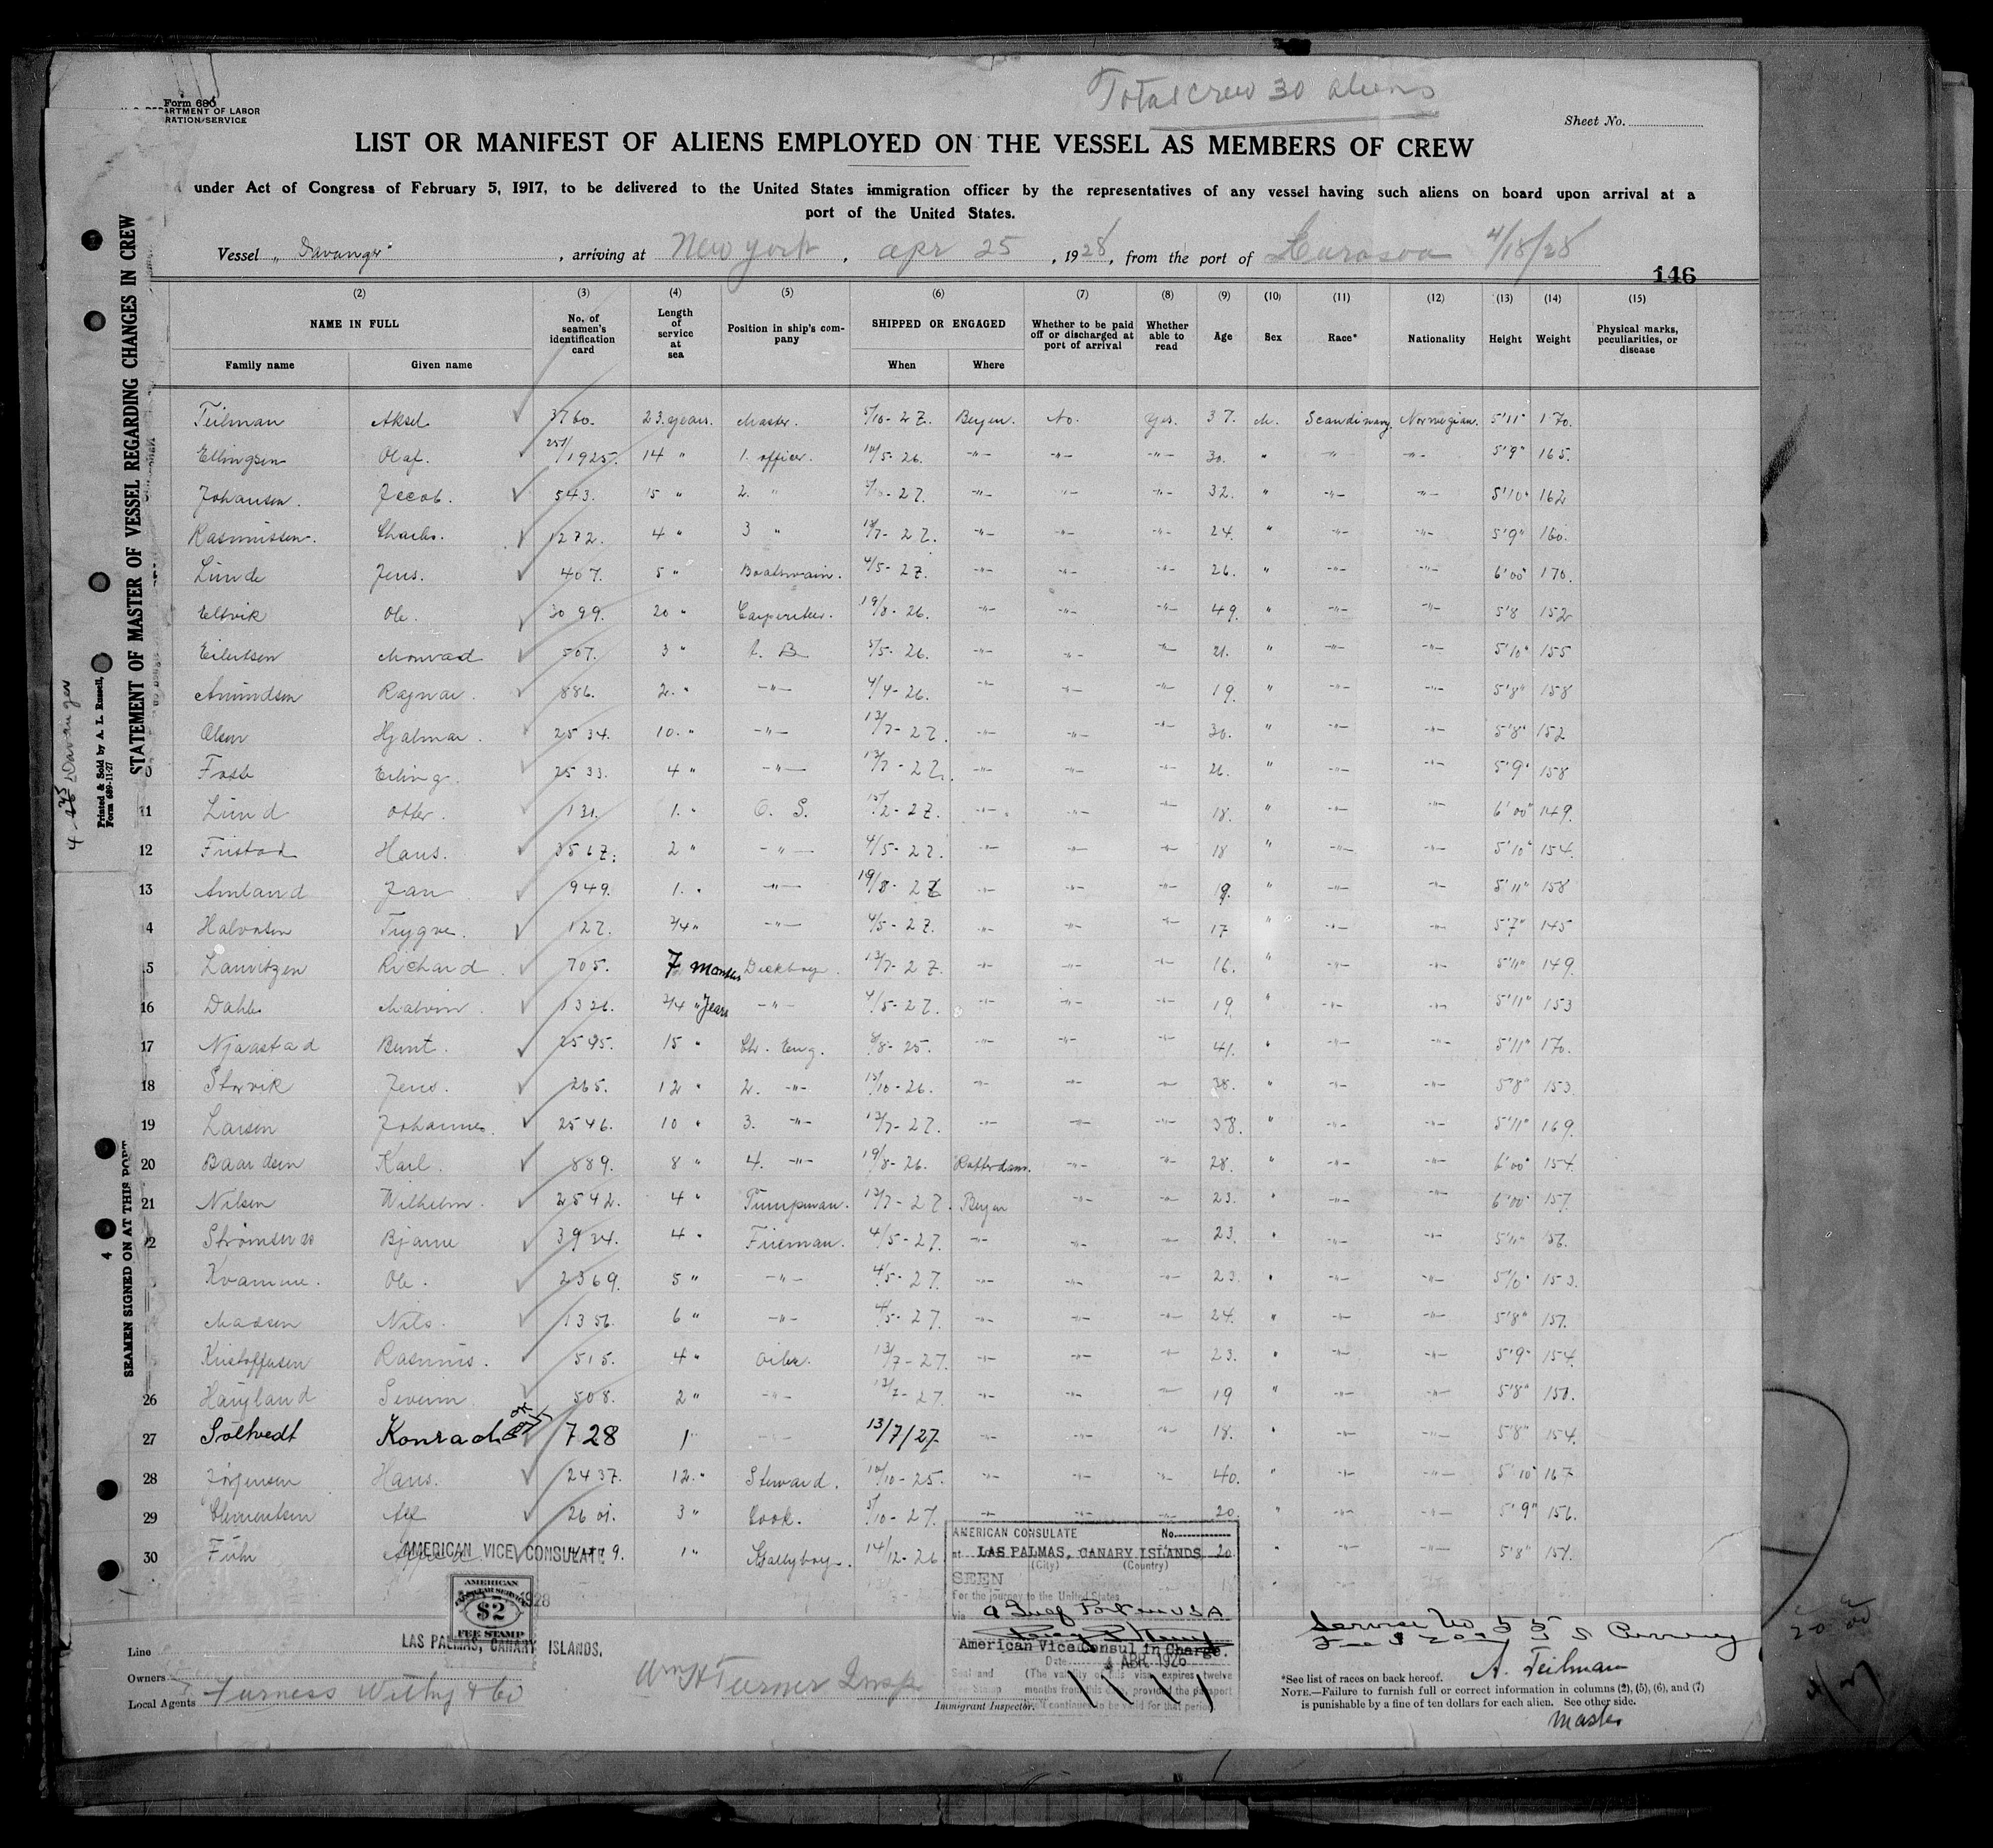 Total crew 30 aliens
Form 680
DEPARTMENT OF LABOR
RATION SERVICE
Sheet No.
LIST OR MANIFEST OF ALIENS EMPLOYED ON THE VESSEL AS MEMBERS OF CREW
under Act of Congress of February 5, 1917, to be delivered to the United States immigration officer by the representatives of any vessel having such aliens on board upon arrival at a
port of the United States.
Vessel „Davanger", arriving at New York, Apr 25, 1928, from the port of Curasoa 4/18/28
146
(2) (3) (4) (5) (6) (7) (8) (9) (10) (11) (12) (13) (14) (15)
NAME IN FULL No. of seamen's identification card Length of service at sea Position in ship's company SHIPPED OR ENGAGED Whether to be paid off or discharged at port of arrival Whether able to read Age Sex Race* Nationality Height Weight Physical marks, peculiarities, or disease
Family name Given name When Where
Teilman Aksel 3760. 23 years. Master. 5/10-27. Bergen. No. Yes. 37. M. Scandinavy. Norwegian. 5'11" 170.
Ellingsen Olaf. 251/1925. 14 " 1. officer. 14/5-26. -"- -"- -"- 30. " -"- -"- 5'9" 165.
Johansen. Jecob. 543. 15 " 2. " -27. -"- -"- -"- 32. " -"- -"- 5'10" 162
Rasmussen. Charles. 1272. 4 " 3 " 13/7-27. -"- -"- -"- 24. " -"- -"- 5'9" 160.
Lunde Jens. 407. 5 " Boatswain. 4/5-27. -"- -"- -"- 26. " -"- -"- 6'00" 170.
Eltvik Ole. 3099. 20 " Carpenter. 19/8-26. -"- -"- -"- 49. " -"- -"- 5'8 152
Eilertsen Monrad 507. 3 " A. B. 5/5-26. -"- -"- -"- 21. " -"- -"- 5'10" 155
Amundsen Ragnar. 886. 2. " -"- 4/4-26. -"- -"- -"- 19. " -"- -"- 5'8" 158
Olsen Hjalmar. 2534. 10. " -"- 13/7-27. -"- -"- -"- 30. " -"- -"- 5'8" 152
0 Fosse Erling. 2533. 4 " -"- 13/7-27. -"- -"- -"- 26. " -"- -"- 5'9" 158
11 Lund Otter. 131. 1. " O. S. 15/2-27. -"- -"- -"- 18. " -"- -"- 6'00" 149.
12 Fristad Hans. 3567. 2 " -"- 4/5-27. -"- -"- -"- 18 " -"- -"- 5'10" 154.
13 Amland Jan 949. 1. " -"- 19/8-27 -"- -"- -"- 19. " -"- -"- 5'11" 158
4 Halvorsen Trygve. 127. 3/4 " -"- 4/5-27. -"- -"- -"- 17 " -"- -"- 5'7" 145
5 Lauritzen Richard 705. 7 months Deckboy. 13/7-27. -"- -"- -"- 16. " -"- -"- 5'11" 149.
16 Dahle Malvin. 1326. 3/4 " Years -"- 4/5-27. -"- -"- -"- 19. " -"- -"- 5'11" 153
17 Njaastad Bernt. 2595. 15 " Ch. Eng. 8/8-25. -"- -"- -"- 41. " -"- -"- 5'11" 170.
18 Storvik Jens. 265. 12 " 2. -"- 13/10-26. -"- -"- -"- 38. " -"- -"- 5'8" 153.
19 Larsen Johannes. 2546. 10 " 3. -"- 13/7-27. -"- -"- -"- 38. " -"- -"- 5'11" 169.
20 Baardsen Karl. 889. 8 " 4. -"- 19/8-26. Rotterdam. -"- -"- 28. " -"- -"- 6'00" 154.
21 Nilsen Wilhelm. 2542. 4 " Pumpman. 13/7-27. Bergen -"- -"- 23. " -"- -"- 6'00" 157.
22 Strømsnes Bjarne 3924. 4 " Fireman. 4/5-27. -"- -"- -"- 23. " -"- -"- 5'11" 156.
Kvamme. Ole. 2369. 5 " -"- 4/5-27. -"- -"- -"- 23. " -"- -"- 153.
Madsen Nils. 1356. 6 " -"- 4/5-27. -"- -"- -"- 24. " -"- -"- 5'8" 157.
Kristoffersen Rasmus. 515. 4 " Oiler. 13/7-27. -"- -"- -"- 23. " -"- -"- 5'9" 154.
26 Haugland Severin. 508. 2 " -"- 13/7-27 -"- -"- -"- 19 " -"- -"- 5'8" 150.
27 Soltvedt Konrad 728 1 " -"- 13/7/27 -"- -"- -"- 18. " -"- -"- 5'8" 154.
28 Jørgensen Hans. 2437. 12. " Steward. 10/10-25. -"- -"- -"- 40. " -"- -"- 5'10" 167
29 Clementsen Alf 2601. 3 " Cook. 5/10-27. -"- -"- -"- 20. " -"- -"- 5'9" 156.
30 Führ 9. 1 " Gallyboy. 14/12-26 20. " -"- -"- 5'8" 157.
AMERICAN VICE CONSULATE
1928
AMERICAN
CONSULAR SERVICE
$2
FEE STAMP
LAS PALMAS, CANARY ISLANDS.
AMERICAN CONSULATE No.
at LAS PALMAS, CANARY ISLANDS
(City) (Country)
SEEN
For the journey to the United States
via a Gulf Port in USA
American Vice Consul in Charge.
Date 4 APR 1928
Seal and (The validity of this visa expires twelve
Fee Stamp months from this date, provided the passport
continues to be valid for that period)
Service No 55
A. Teilman
Master
Line
Owners
Local Agents Furness Withy & Co
Wm H Turner Insp
Immigrant Inspector.
*See list of races on back hereof.
NOTE.—Failure to furnish full or correct information in columns (2), (5), (6), and (7)
is punishable by a fine of ten dollars for each alien. See other side.
STATEMENT OF MASTER OF VESSEL REGARDING CHANGES IN CREW
Printed & Sold by A. L. Russell,
Form 689-11-27
Davanger
SEAMEN SIGNED ON AT THIS PORT
4